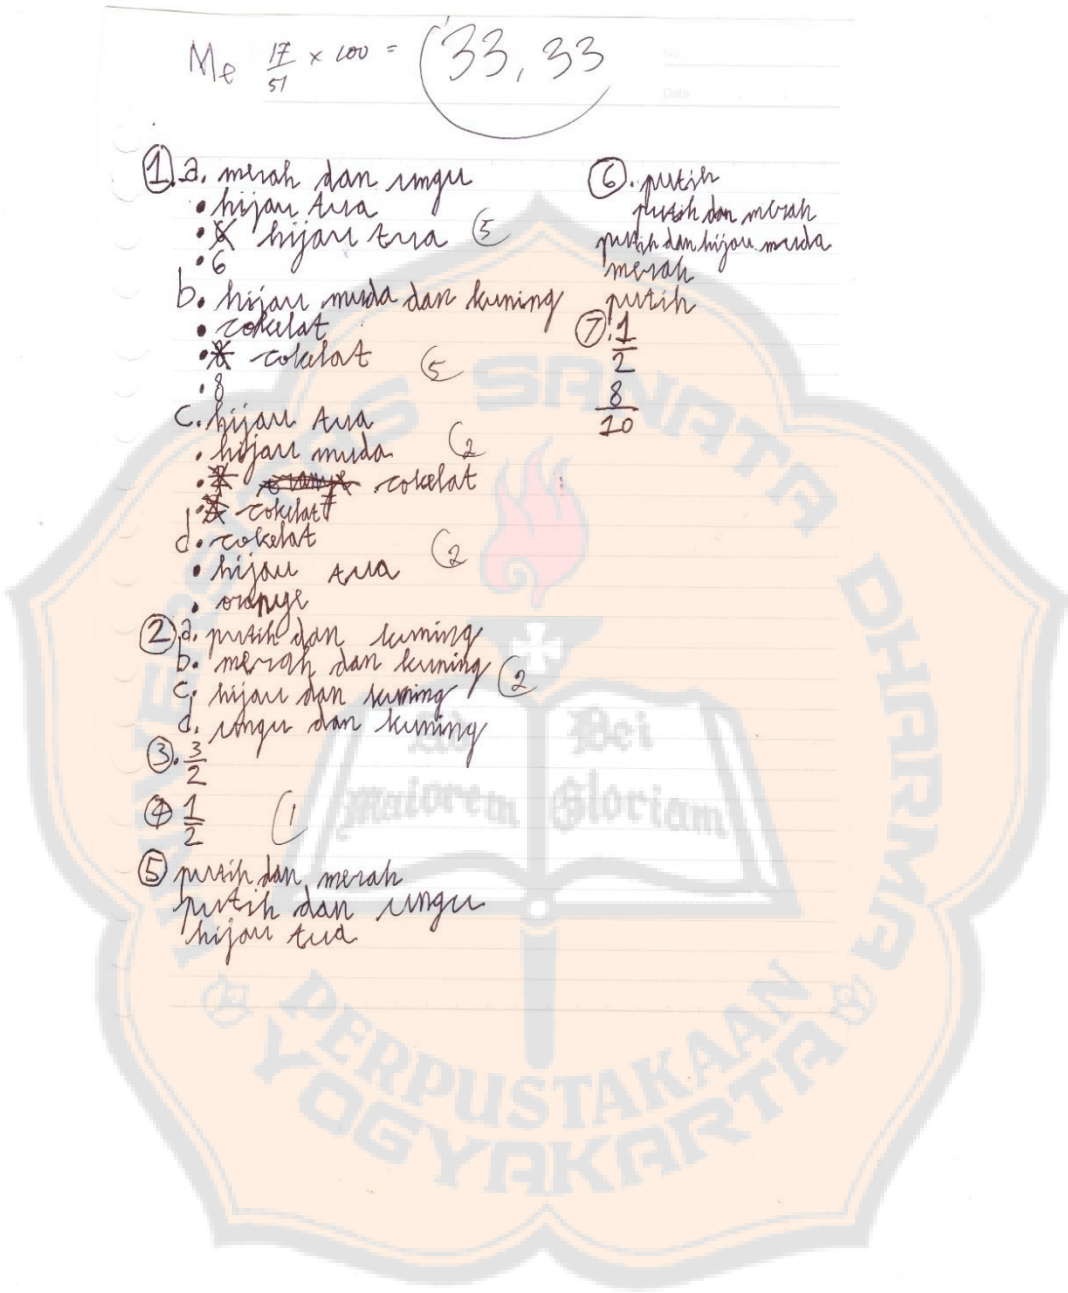 Me 17/51 x 100 = 33,33
No.
Date.
1. a. merah dan ungu
• hijau tua
• hijau tua 5
• 6
b. hijau muda dan kuning
• cokelat
• cokelat 5
• 8
c. hijau tua
• hijau muda 2
• cokelat
• cokelat
d. cokelat
• hijau tua 2
• oranye
2 a. putih dan kuning
b. merah dan kuning 2
c. hijau dan kuning
d. ungu dan kuning
3. 3/2
4 1/2 1
5 putih dan merah
putih dan ungu
hijau tua
6. putih
putih dan merah
putih dan hijau muda
merah
putih
7. 1/2
8/10
UNIVERSITAS SANATA DHARMA
Ad Dei
Maiorem Gloriam
PERPUSTAKAAN
YOGYAKARTA